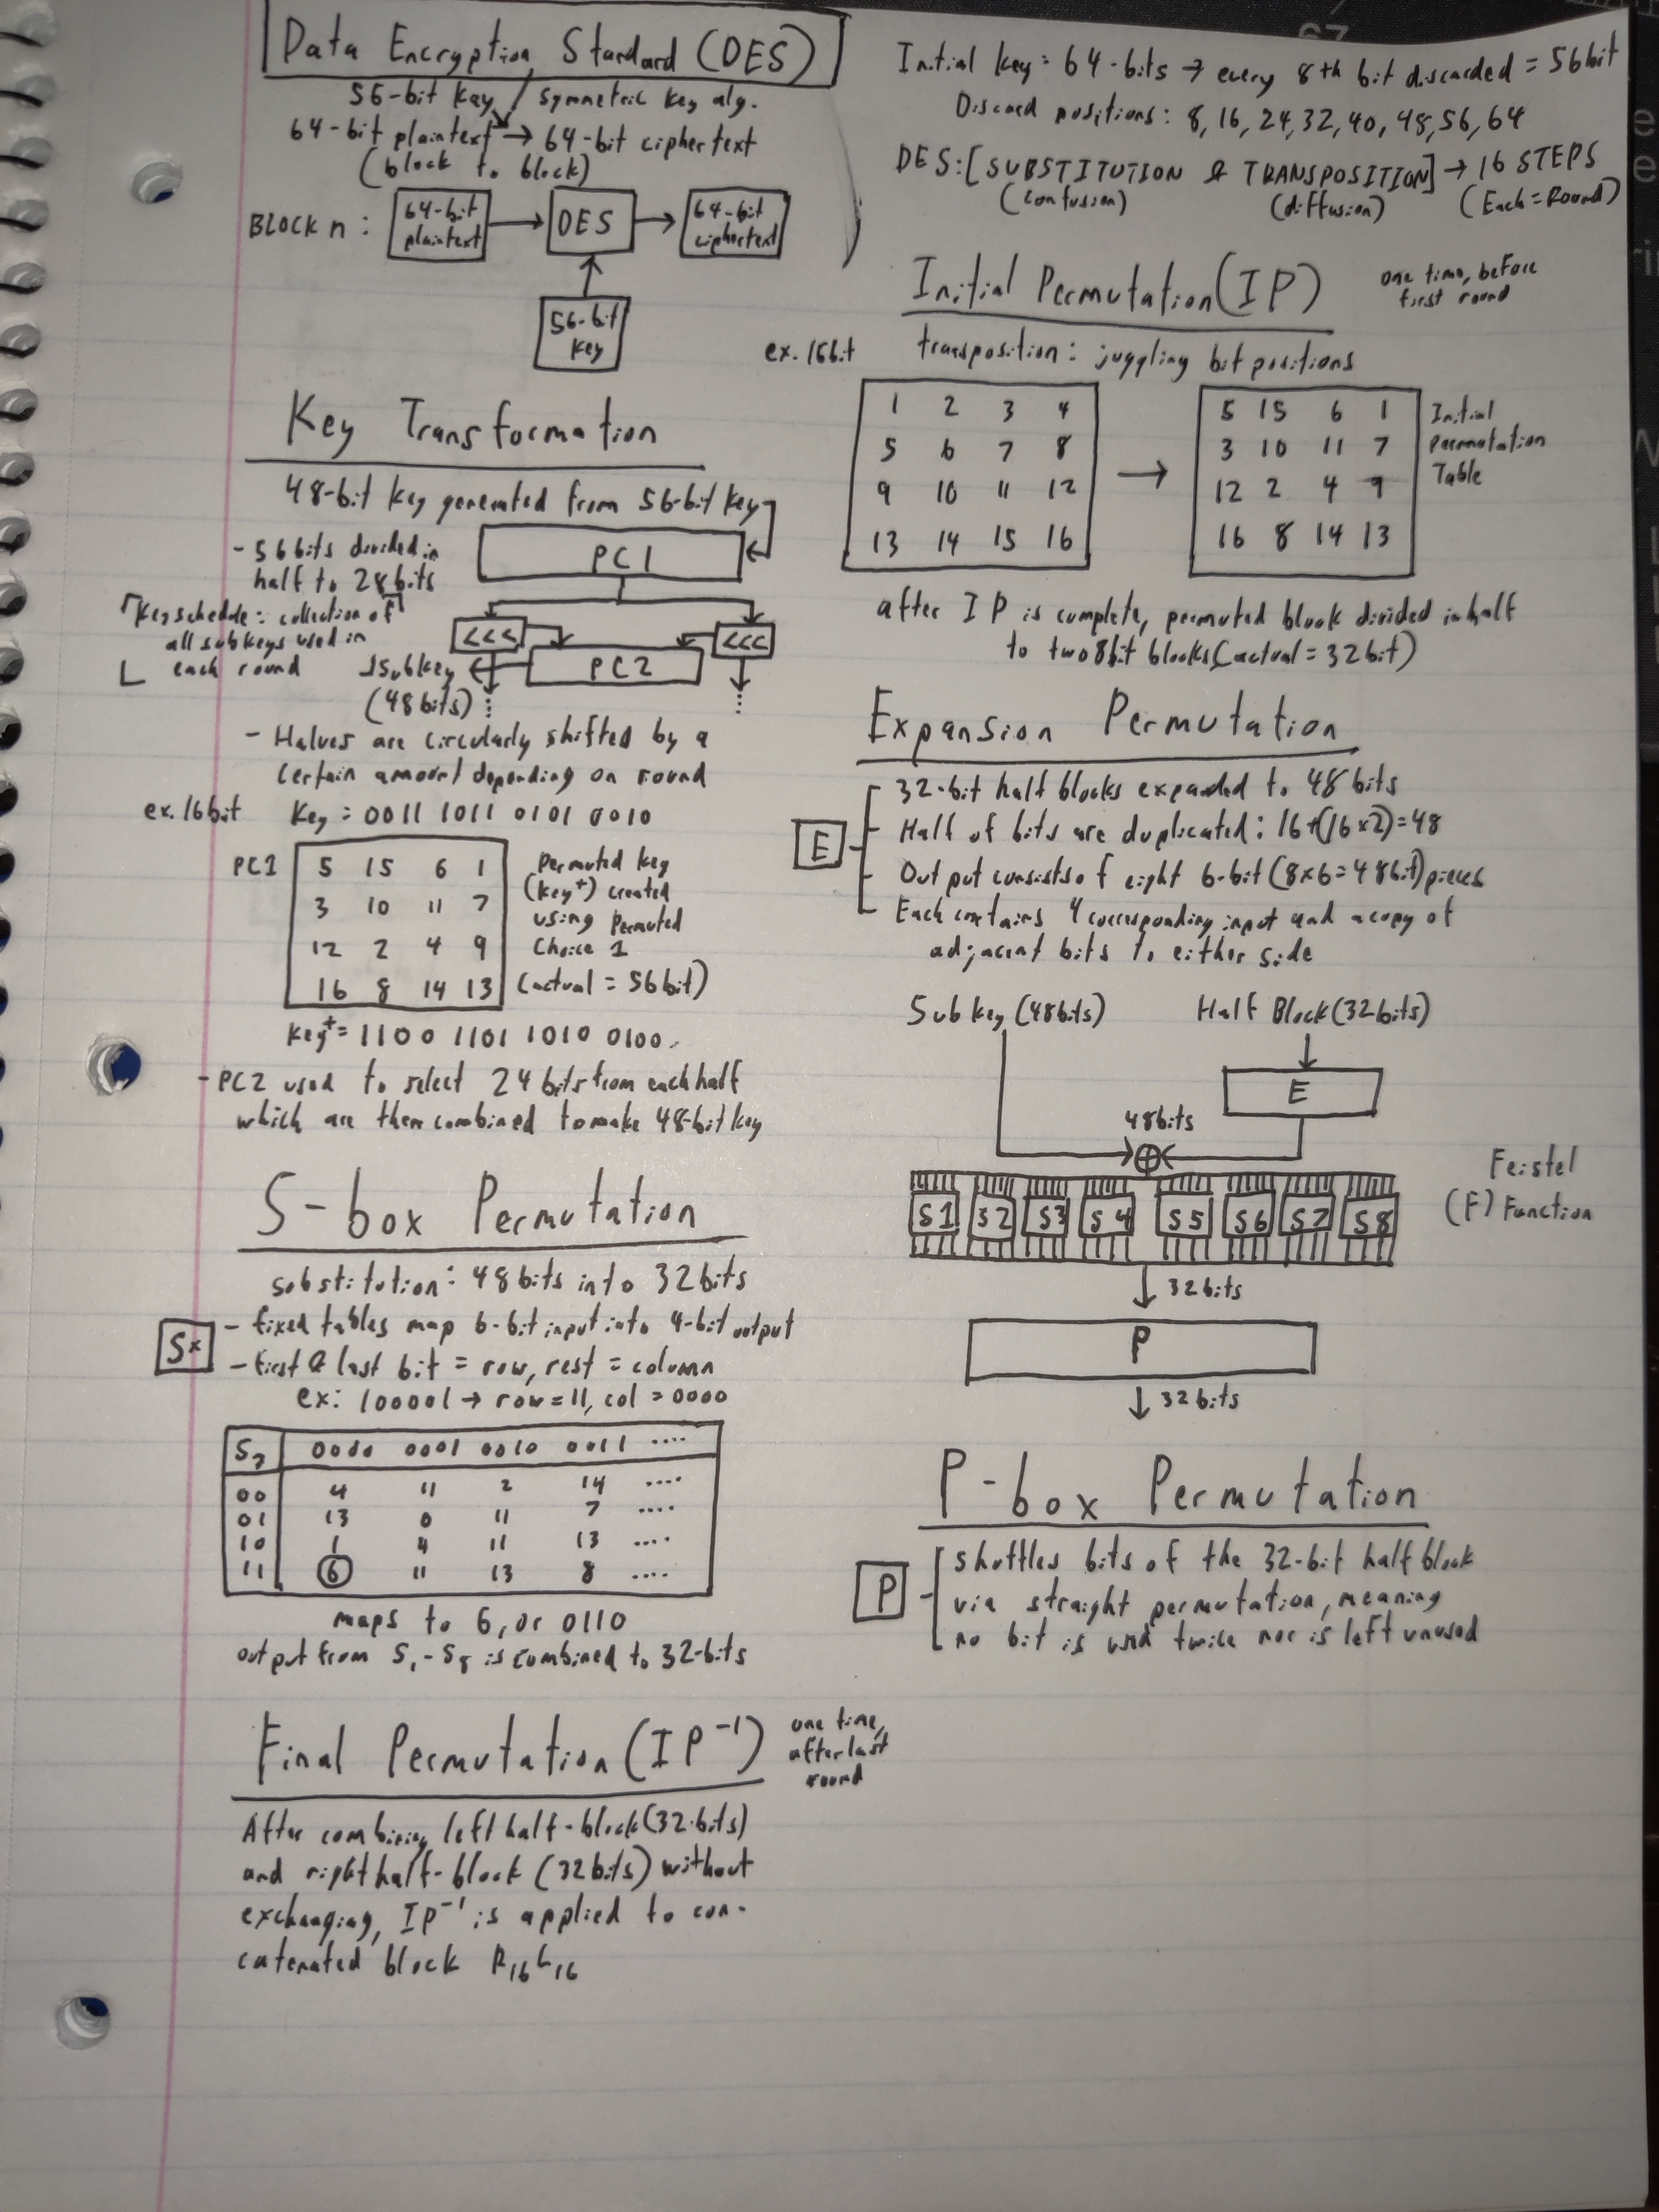 Data Encryption Standard (DES)
56-bit key / symmetric key alg.
64-bit plaintext → 64-bit ciphertext
(block to block)
BLOCK n: 64-bit plaintext → DES → 64-bit ciphertext
56-bit key
Key Transformation
48-bit key generated from 56-bit key
- 56 bits divided in
half to 28 bits
PC1
Key schedule: collection of
all subkeys used in
each round
<<< <<<
PC2
Subkey
(48 bits)
- Halves are circularly shifted by a
certain amount depending on round
ex. 16bit Key = 0011 1011 0101 0010
PC1
5 15 6 1
3 10 11 7
12 2 4 9
16 8 14 13
Permuted key
(key+) created
using Permuted
Choice 1
(actual = 56bit)
Key+ = 1100 1101 1010 0100
- PC2 used to select 24 bits from each half
which are then combined to make 48-bit key
S-box Permutation
substitution: 48 bits into 32 bits
S*
- fixed tables map 6-bit input into 4-bit output
- first & last bit = row, rest = column
ex: 100001 → row = 11, col = 0000
S7 0000 0001 0010 0011 ....
00 4 11 2 14 ....
01 13 0 11 7 ....
10 1 4 11 13 ....
11 6 11 13 8 ....
maps to 6, or 0110
output from S1-S8 is combined to 32-bits
Final Permutation (IP⁻¹)
one time,
after last
round
After combining left half-block (32-bits)
and right half-block (32 bits) without
exchanging, IP⁻¹ is applied to con-
catenated block R16L16
Initial key = 64-bits → every 8th bit discarded = 56bit
Discard positions: 8, 16, 24, 32, 40, 48, 56, 64
DES: [SUBSTITUTION & TRANSPOSITION] → 16 STEPS
(confusion) (diffusion) (Each = Round)
Initial Permutation (IP)
one time, before
first round
ex. 16bit transposition: juggling bit positions
1 2 3 4
5 6 7 8
9 10 11 12
13 14 15 16
→
5 15 6 1
3 10 11 7
12 2 4 9
16 8 14 13
Initial
Permutation
Table
after IP is complete, permuted block divided in half
to two 8bit blocks (actual = 32bit)
Expansion Permutation
E
32-bit half blocks expanded to 48 bits
Half of bits are duplicated: 16+(16x2)=48
Output consists of eight 6-bit (8x6=48bit) pieces
Each contains 4 corresponding input and a copy of
adjacent bits to either side
Subkey (48bits) Half Block (32bits)
E
48bits
⊕
S1 S2 S3 S4 S5 S6 S7 S8
Feistel
(F) Function
32bits
P
32bits
P-box Permutation
P
shuffles bits of the 32-bit half block
via straight permutation, meaning
no bit is used twice nor is left unused
67